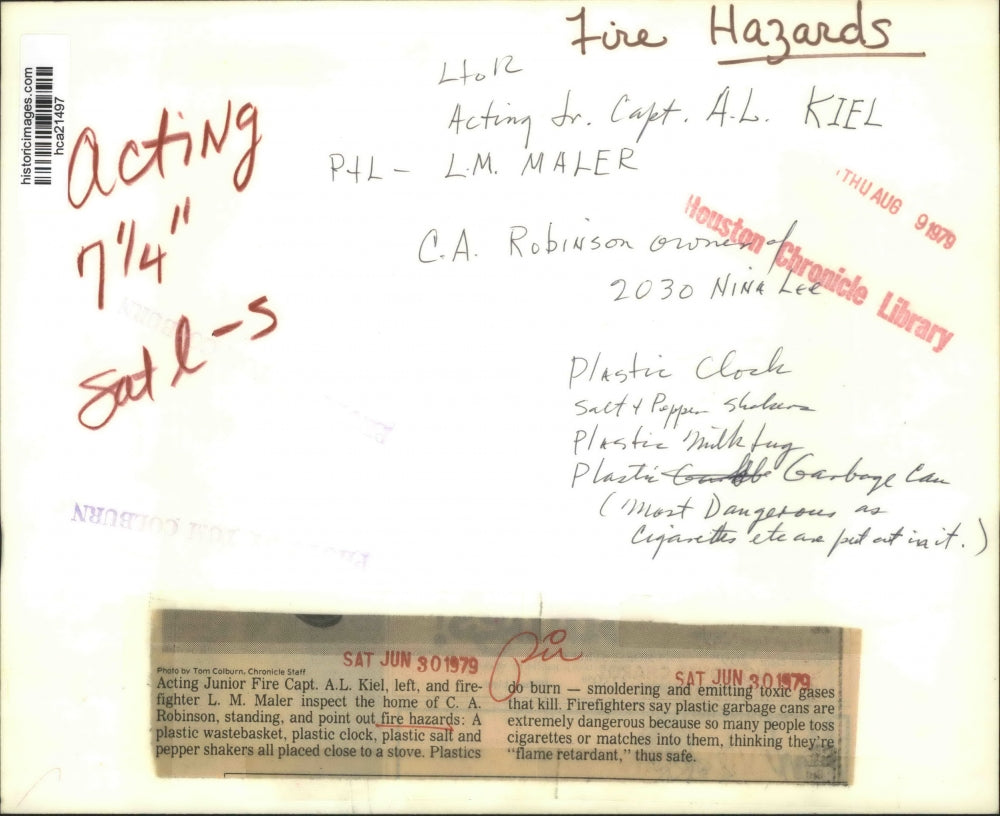 Fire Hazards
historicimages.com
hca21497
L to R
Acting Jr. Capt. A.L. KIEL
L.M. MALER
Acting
7 1/4"
Sat l-s
THU AUG 9 1979
Houston Chronicle Library
C.A. Robinson owner of
2030 Nina Lee
Plastic Clock
Salt & Pepper Shakers
Plastic Milk Jug
Plastic Garbage Can
(Most Dangerous as
Cigarettes etc are put out in it.)
TOM COLBURN
SAT JUN 30 1979
Photo by Tom Colburn, Chronicle Staff
Acting Junior Fire Capt. A.L. Kiel, left, and fire-
fighter L. M. Maler inspect the home of C. A.
Robinson, standing, and point out fire hazards: A
plastic wastebasket, plastic clock, plastic salt and
pepper shakers all placed close to a stove. Plastics
SAT JUN 30 1979
do burn — smoldering and emitting toxic gases
that kill. Firefighters say plastic garbage cans are
extremely dangerous because so many people toss
cigarettes or matches into them, thinking they're
"flame retardant," thus safe.